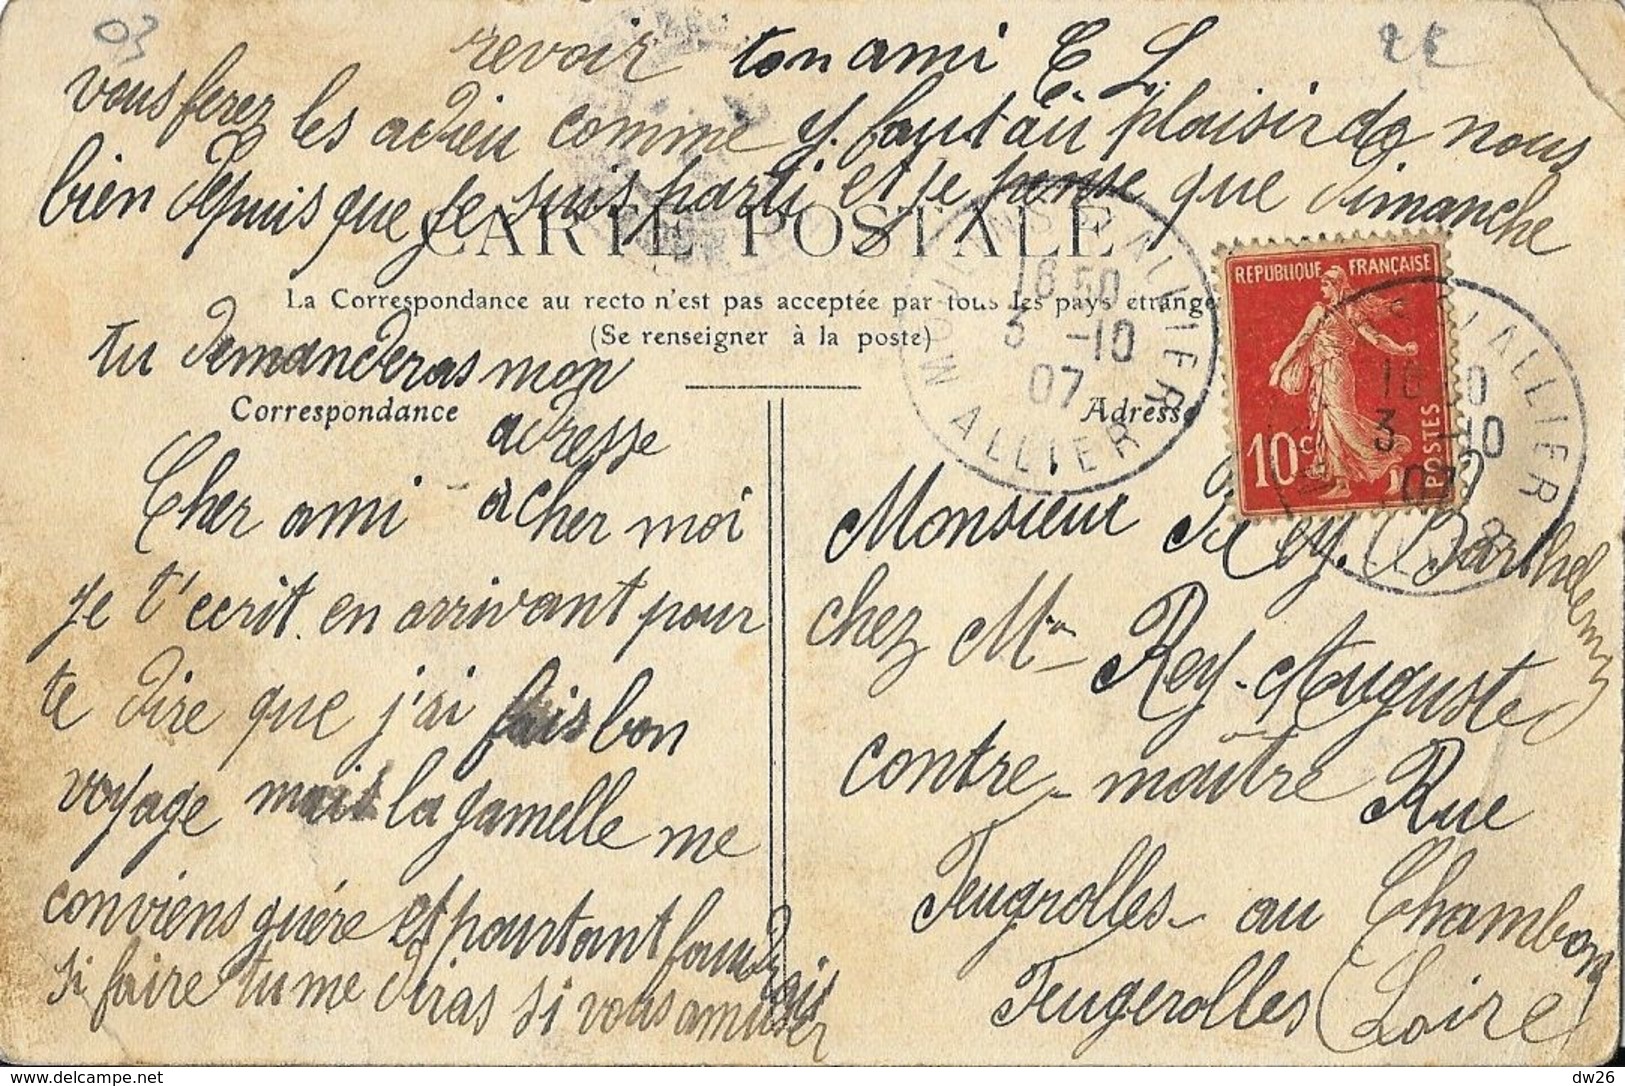 03
revoir ton ami E. L.
vous ferez les adieu comme y faut au plaisir de nous
bien depuis que je suis parti et je pense que dimanche
CARTE POSTALE
La Correspondance au recto n'est pas acceptée par tous les pays étrange
(Se renseigner à la poste)
tu demanderas mon
adresse
Correspondance
Cher ami a cher moi
je t'ecrit en arrivant pour
te dire que j'ai fais bon
voyage mais la gamelle me
conviens guére et pourtant faudrais
si faire tu me diras si vous amuser
Adresse
REPUBLIQUE FRANÇAISE
10c POSTES
ALLIER
18 50
3 -10
07
ALLIER
3 -10
07
Monsieur Rey. Barthelemy
chez Mr Rey. Auguste
contre-maître Rue
Feugrolles au Chambon
Feugerolles (Loire)
dw26